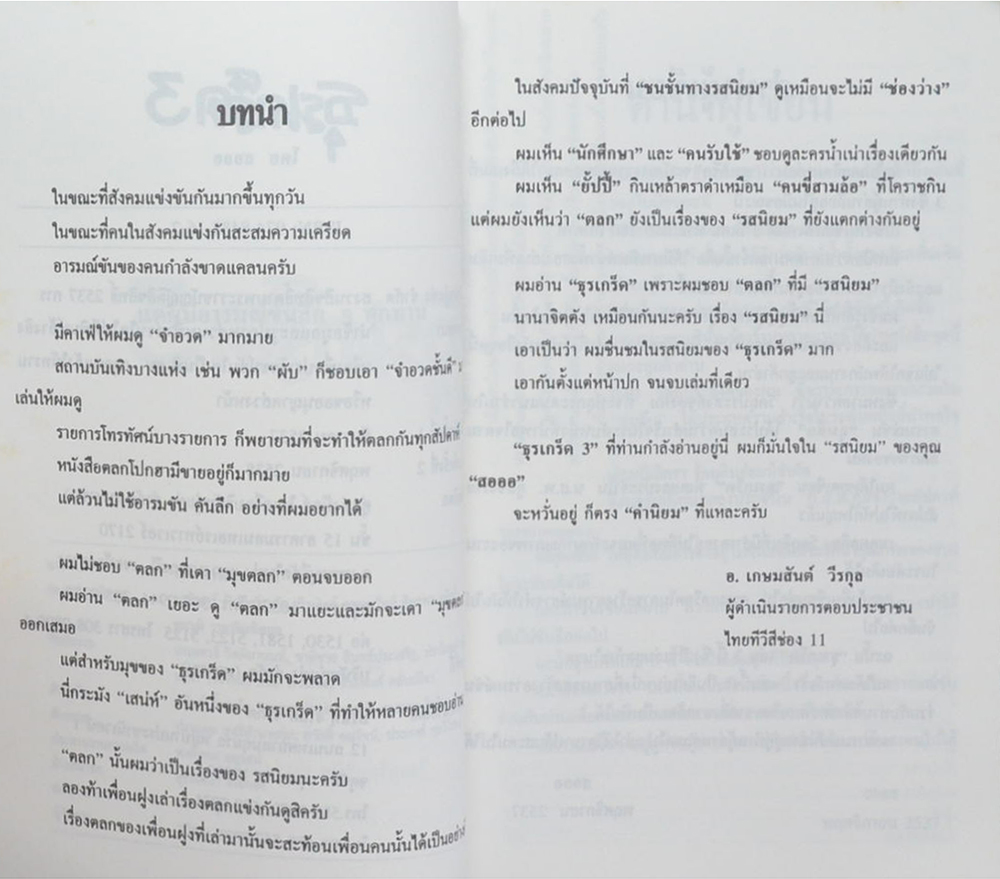 บทนำ
ในขณะที่สังคมแข่งขันกันมากขึ้นทุกวัน
ในขณะที่คนในสังคมแข่งกันสะสมความเครียด
อารมณ์ขันของคนกำลังขาดแคลนครับ
มีคาเฟ่ให้ผมดู “จำอวด” มากมาย
สถานบันเทิงบางแห่ง เช่น พวก “ผับ” ก็ชอบเอา “จำอวดชั้นดี”
เล่นให้ผมดู
รายการโทรทัศน์บางรายการ ก็พยายามที่จะทำให้ตลกกันทุกสัปดาห์
หนังสือตลกโปกฮามีขายอยู่ก็มากมาย
แต่ล้วนไม่ใช้อารมขัน คันลึก อย่างที่ผมอยากได้
ผมไม่ชอบ “ตลก” ที่เดา “มุขตลก” ตอนจบออก
ผมอ่าน “ตลก” เยอะ ดู “ตลก” มาแยะและมักจะเดา “มุขตลก
ออกเสมอ
แต่สำหรับมุขของ “ธุรเกร็ด” ผมมักจะพลาด
นี่กระมัง “เสน่ห์” อันหนึ่งของ “ธุรเกร็ด” ที่ทำให้หลายคนชอบอ่าน
“ตลก” นั้นผมว่าเป็นเรื่องของ รสนิยมนะครับ
ลองท้าเพื่อนฝูงเล่าเรื่องตลกแข่งกันดูสิครับ
เรื่องตลกของเพื่อนฝูงที่เล่ามานั้นจะสะท้อนเพื่อนคนนั้นได้เป็นอย่างดี
ในสังคมปัจจุบันที่ “ชนชั้นทางรสนิยม” ดูเหมือนจะไม่มี “ช่องว่าง”
อีกต่อไป
ผมเห็น “นักศึกษา” และ “คนรับใช้” ชอบดูละครน้ำเน่าเรื่องเดียวกัน
ผมเห็น “ยั๊ปปี้” กินเหล้าตราดำเหมือน “คนขี่สามล้อ” ที่โคราชกิน
แต่ผมยังเห็นว่า “ตลก” ยังเป็นเรื่องของ “รสนิยม” ที่ยังแตกต่างกันอยู่
ผมอ่าน “ธุรเกร็ด” เพราะผมชอบ “ตลก” ที่มี “รสนิยม”
นานาจิตตัง เหมือนกันนะครับ เรื่อง “รสนิยม” นี่
เอาเป็นว่า ผมชื่นชมในรสนิยมของ “ธุรเกร็ด” มาก
เอากันตั้งแต่หน้าปก จนจบเล่มทีเดียว
“ธุรเกร็ด 3” ที่ท่านกำลังอ่านอยู่นี่ ผมก็มั่นใจใน “รสนิยม” ของคุณ
“สอออ”
จะหวั่นอยู่ ก็ตรง “คำนิยม” ที่แหละครับ
อ. เกษมสันต์ วีรกุล
ผู้ดำเนินรายการตอบประชาชน
ไทยทีวีสีช่อง 11